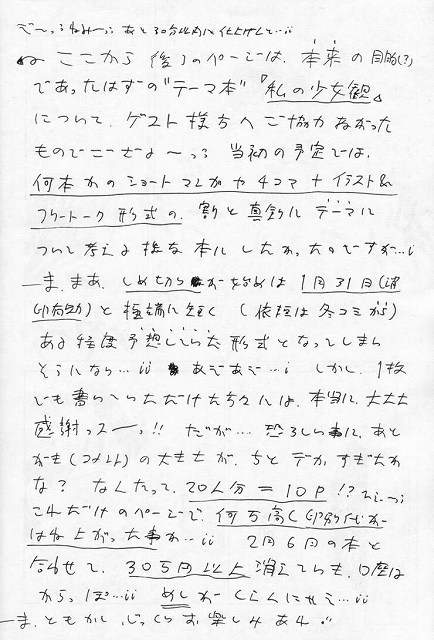 で〜っっねみ〜っっ あと30分以内に仕上げんと…ii
ここから後ろのページは、本来の目的(?)
であったはずの"テーマ本"『私の少女観』
について、ゲスト様方へご協力ねがった
ものでございま〜っっ 当初の予定では、
何本かのショートマンガや4コマ+イラスト&
フリートーク形式の、割と真剣にテーマに
ついて考える様な本にしたかったのですが…i
ーま、まあ、しめ切りが始めは1月31日(消
印有効)と極端に短く(依頼は冬コミから)
ある程度予想していた形式となってしまい
そうになり…ii あぞあぞ…i しかし、1枚
でも書いていただけた方々には、本当に、大大大
感謝っスーっ!! だが…恐ろしい事に、あと
がき(コメント)の大きさが、ちとデカすぎたか
な? なんたって、20人分=10P!?
これだけのページで、何万高く印刷代が
はね上がった事か…ii 2月6日の本と
合わせて、30万円以上消えてらも、口座は
からっぽ…ii めしがくらんにゃえ…ii
ーま、ともかく、じっくりお楽しみあれ。